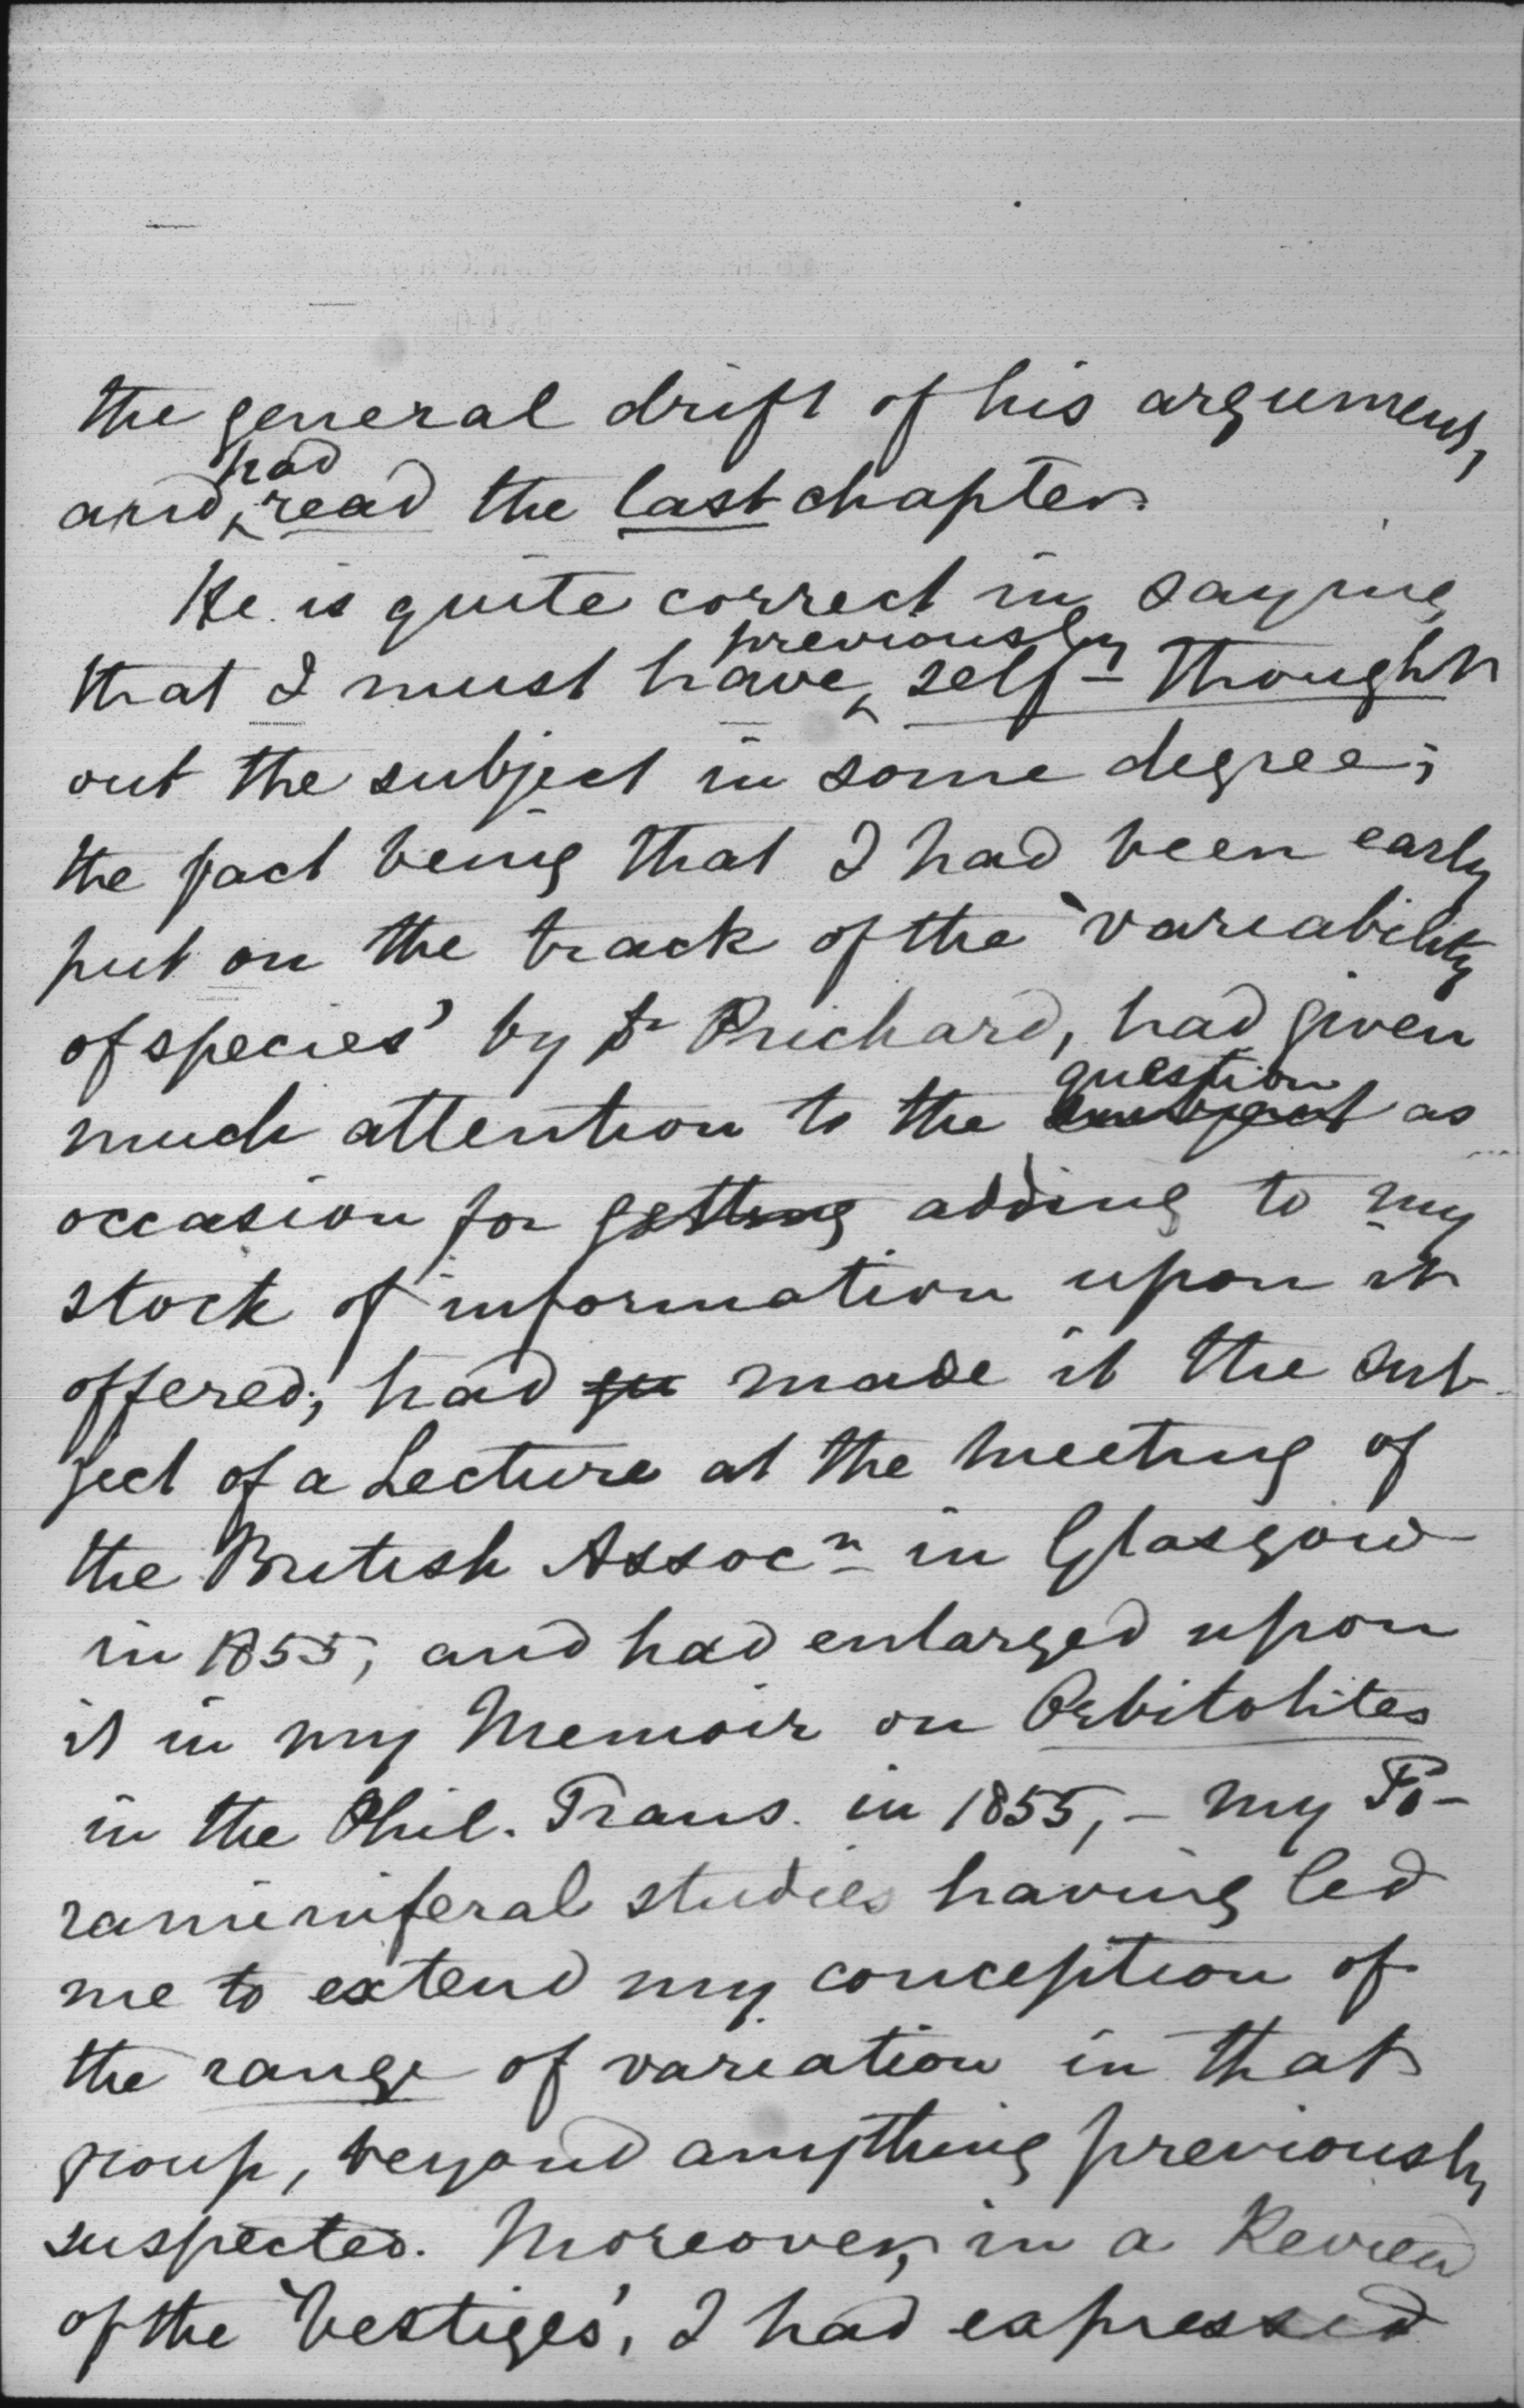 the general drift of his argument,
and had read the last chapter.
He is quite correct in saying
that I must have previously self-thought
out the subject in some degree;
the fact being that I had been early
put on the track of the 'variability
of species' by Dr Prichard, had given
much attention to the subject question as
occasion for getting adding to my
stock of information upon it
offered; had made it the sub-
ject of a Lecture at the meeting of
the British Assocn in Glasgow
in 1855, and had enlarged upon
it in my Memoir on Orbitolites
in the Phil. Trans. in 1855, - my Fo-
raminiferal studies having led
me to extend my conception of
the range of variation in that
group, beyond anything previously
suspected. Moreover, in a Review
of the 'Vestiges', I had expressed